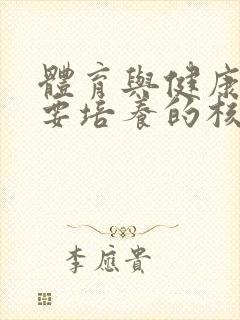 體育與健康
要培養的核
李應貴